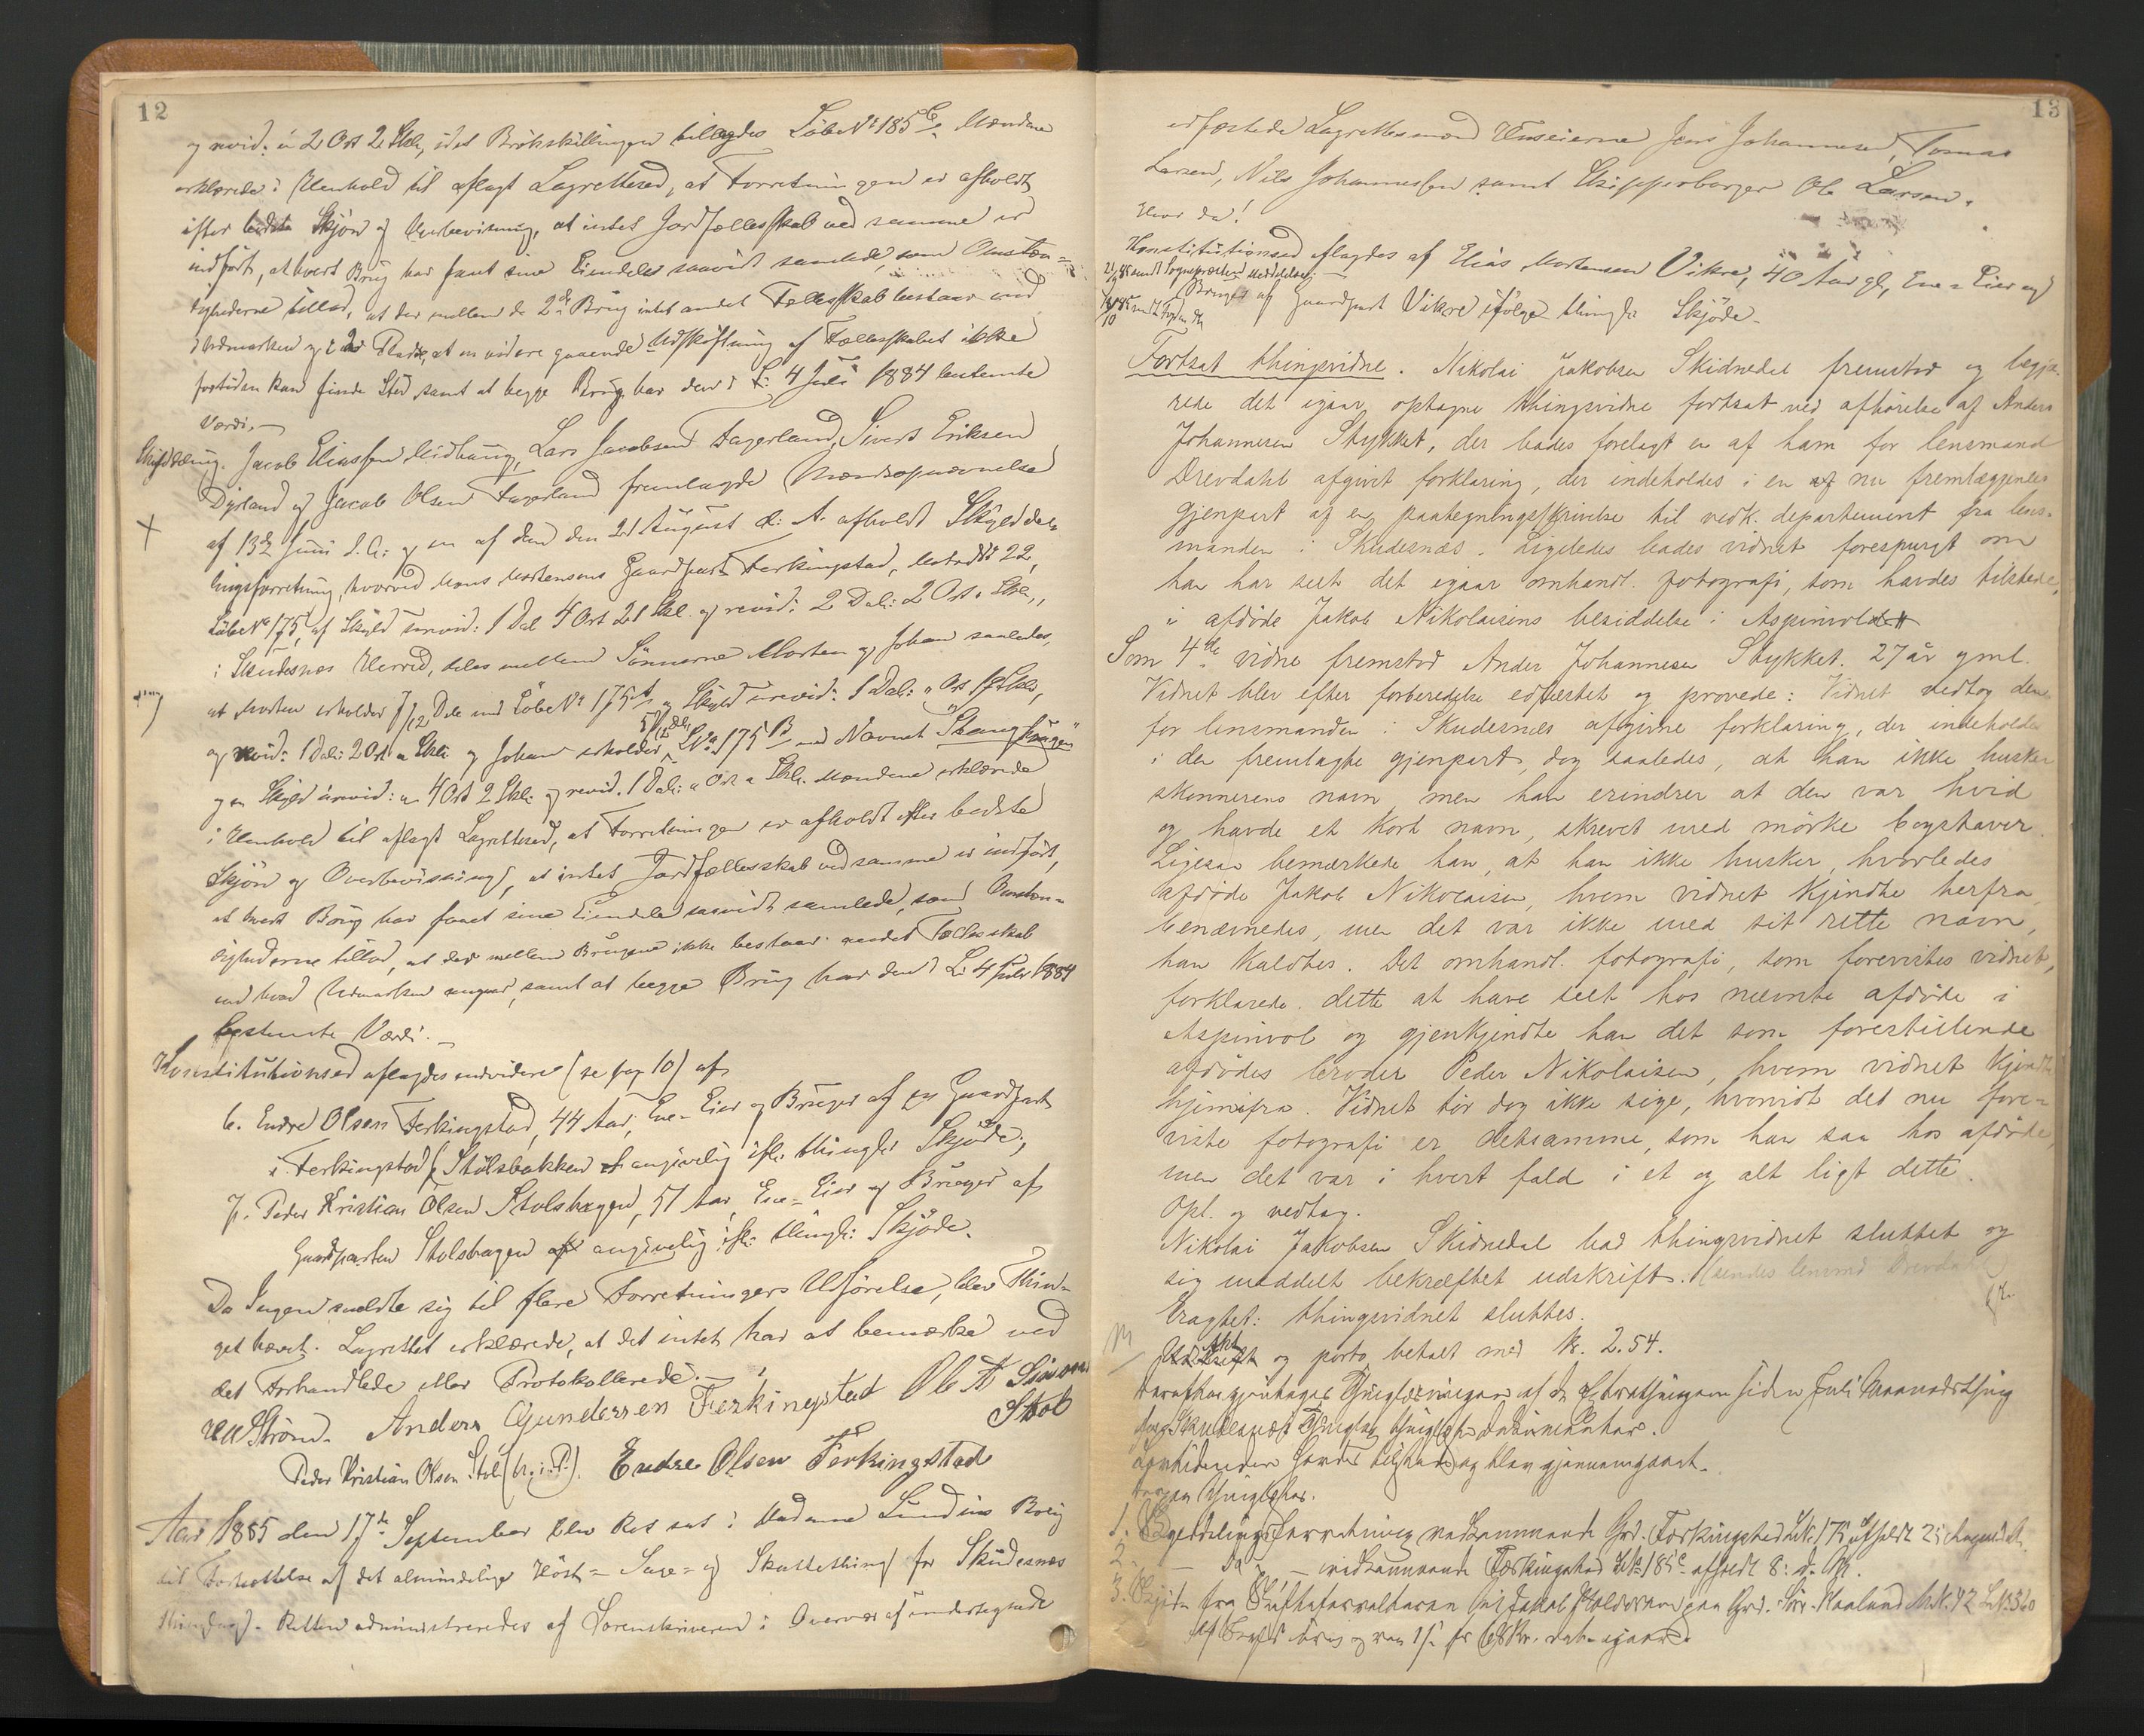 12
og revid: " 2 Ort 2 Skl:, idet Brökskillingen tillagdes Löbe No 185 c. Mændene
erklærede i Henhold til aflagt Lagrettesed, at Forretningen er afholdt
efter bedste Skjön og Overbevisning, at intet Jordfællesskab ved samme er
indfört, at hvert Brug har faaet sine Eiendele saavidt samlede, som Omstæn=
dighederne tillod, at der mellem de 2de Brug intet andet Fællesskab bestaar end
i Udmarken og at en videre gaaende Udskiftning af Fællesskabet ikke
fortiden kan finde Sted samt at begge Brug har den i L: 4 Juli 1884 bestemte
Værdi.
Skylddeling. Jacob Eliassen Midhaug, Lars Jacobsen Fagerland, Sivert Eriksen
Dyrland og Jacob Olsen Fagerland fremlagde Mændsopnævnelse
af 13de Juni d. A: og en af dem den 21 August d: A. afholdt Skylddel=
lingsforretning, hvorved Mons Mortensens Gaardpart Ferkingstad, Matr No 22,
Löbe No 175, af Skyld urevid: 1 Dal 4 Ort 21 Skl. og revid: 2 Dal: 2 Ort " Skl:,
i Skudesnes Herred, deles mellem Sönnerne Morten og Johan saaledes,
at Morten erholder 7/12 Dele med Löbe No 175 A og Skyld urevid: 1 Dal: " Ort 19 Skl:,
og revid: 1 Dal: 2 Ort " Skl: og Johan erholder 5/12 Dele L No 175 B med Navnet "Stanghaugen"
og en Skyld urevid: " 4 Ort 2 Skl: og revid. 1 Dal: " Ort " Skl. Mændene erklærede
i Henhold til aflagt Lagrettesed, at Forretningen er afholdt efter bedste
Skjön og Overbevisning, at intet Jordfællesskab ved samme er indfört,
at hvert Brug har faaet sine Eiendele saavidt samlede, som Omstæn=
dighederne tillod, at der mellem Brugene ikke bestaar andet Fællesskab
end hvad Udmarken angaar, samt at begge Brug har den i L: 4 Juli 1884
bestemte Værdi.
Konstitutionsed aflagdes endvidere (se pag 10) af
6. Endre Olsen Ferkingstad, 44 Aar, Ene=Eier og Bruger af en Gaardpart
i Ferkingstad (Stölsbakken) angivelig ifl: thinglr Skjöde;
7. Peder Kristian Olsen Stolshagen, 51 Aar, Ene=Eier og Bruger af
Gaardparten Stolshagen angivelig ifl: thinglr: Skjöde.
Da Ingen meldte sig til flere Forretningers Udförelse, blev Thin=
get hævet. Lagrettet erklærede, at det intet har at bemærke ved
det Forhandlede eller Protokollerede.
Ström. Anders Gundersen Ferkingstad Ole A Simons
Stol
Peder Kristian Olsen Stol (m. i. P.). Endre Olsen Ferkingstad
Aar 1885 den 17de September blev Ret sat i Madame Lundins Brug
til Fortsættelse af det almindelige Höst= Sage= og Skattething for Skudesnes
Thinglag. Retten administreredes af Sorenskriveren i Overvær af undertegnede
13
edfæstede Lagrettesmænd Huseierne Jens Johannesen, Tomas
Larsen, Nils Johannessen samt Skipperborger Ole Larsen.
Hvor da!
Konstitutionsed aflagdes af Elias Mortensen Vikre, 40 Aar gl, Ene=Eier og
Bruger af Gaardpart Vikre ifölge thinglr Skjöde.
Fortsat thingsvidne. Nikolai Jakobsen Skidnedal fremstod og begjæ-
rede det igaar optagne thingsvidne fortsat ved afhörelse af Anders
Johannesen Stykket, der bades forelagt en af ham for lensmand
Drevdahl afgivet forklaring, der indeholdes i en nu fremlæggendes
gjenpart af en paategningsskrivelse til vedk. departement fra lens-
manden i Skudesnæs. Ligeledes bades vidnet forespurgt om
han har seet det igaar omhandl. fotografi, som havdes tilstede,
i afdöde Jakob Nikolaisens besiddelse i Aspinvol
Som 4de vidne fremstod Anders Johannesen Stykket. 27 år gml.
Vidnet blev efter forberedelse edfæstet og provede: Vidnet vedtog den
for lensmanden i Skudesnæs afgivne forklaring, der indeholdes
i den fremlagte gjenpart, dog saaledes, at han ikke husker
skonnerens navn, men han erindrer at den var hvid
og havde et kort navn, skrevet med mörke bogstaver.
Ligesaa bemærkede han, at han ikke husker, hvorledes
afdöde Jakob Nikolaisen, hvem vidnet kjendte herfra,
benævnedes, men det var ikke med sit rette navn,
han kaldtes. Det omhandl. fotografi, som forevistes vidnet,
forklarede dette at have seet hos nævnte afdöde i
Aspinvol og gjenkjendte han det som forestillende
afdödes broder Peder Nikolaisen, hvem vidnet kjendte
hjemifra. Vidnet tör dog ikke sige, hvorvidt det nu fore=
viste fotografi er detsamme, som han saa hos afdöde,
men det var i hvert fald i et og alt ligt dette.
Opl. og vedtag.
Nikolai Jakobsen Skidnedal bad thingsvidnet sluttet og
sig meddelt bekræftet udskrift. (sendes lensmd Drevdahl)
Eragtet: thingsvidnet sluttes.
og porto betalt med kr. 2.54.
1. Skylddelingsforretning vedkommende Grd. Ferkingstad L No 175 afholdt 21 August d. A.
2. — do — vedkommende Ferkingstad L No 185 c afholdt 8: d. M.